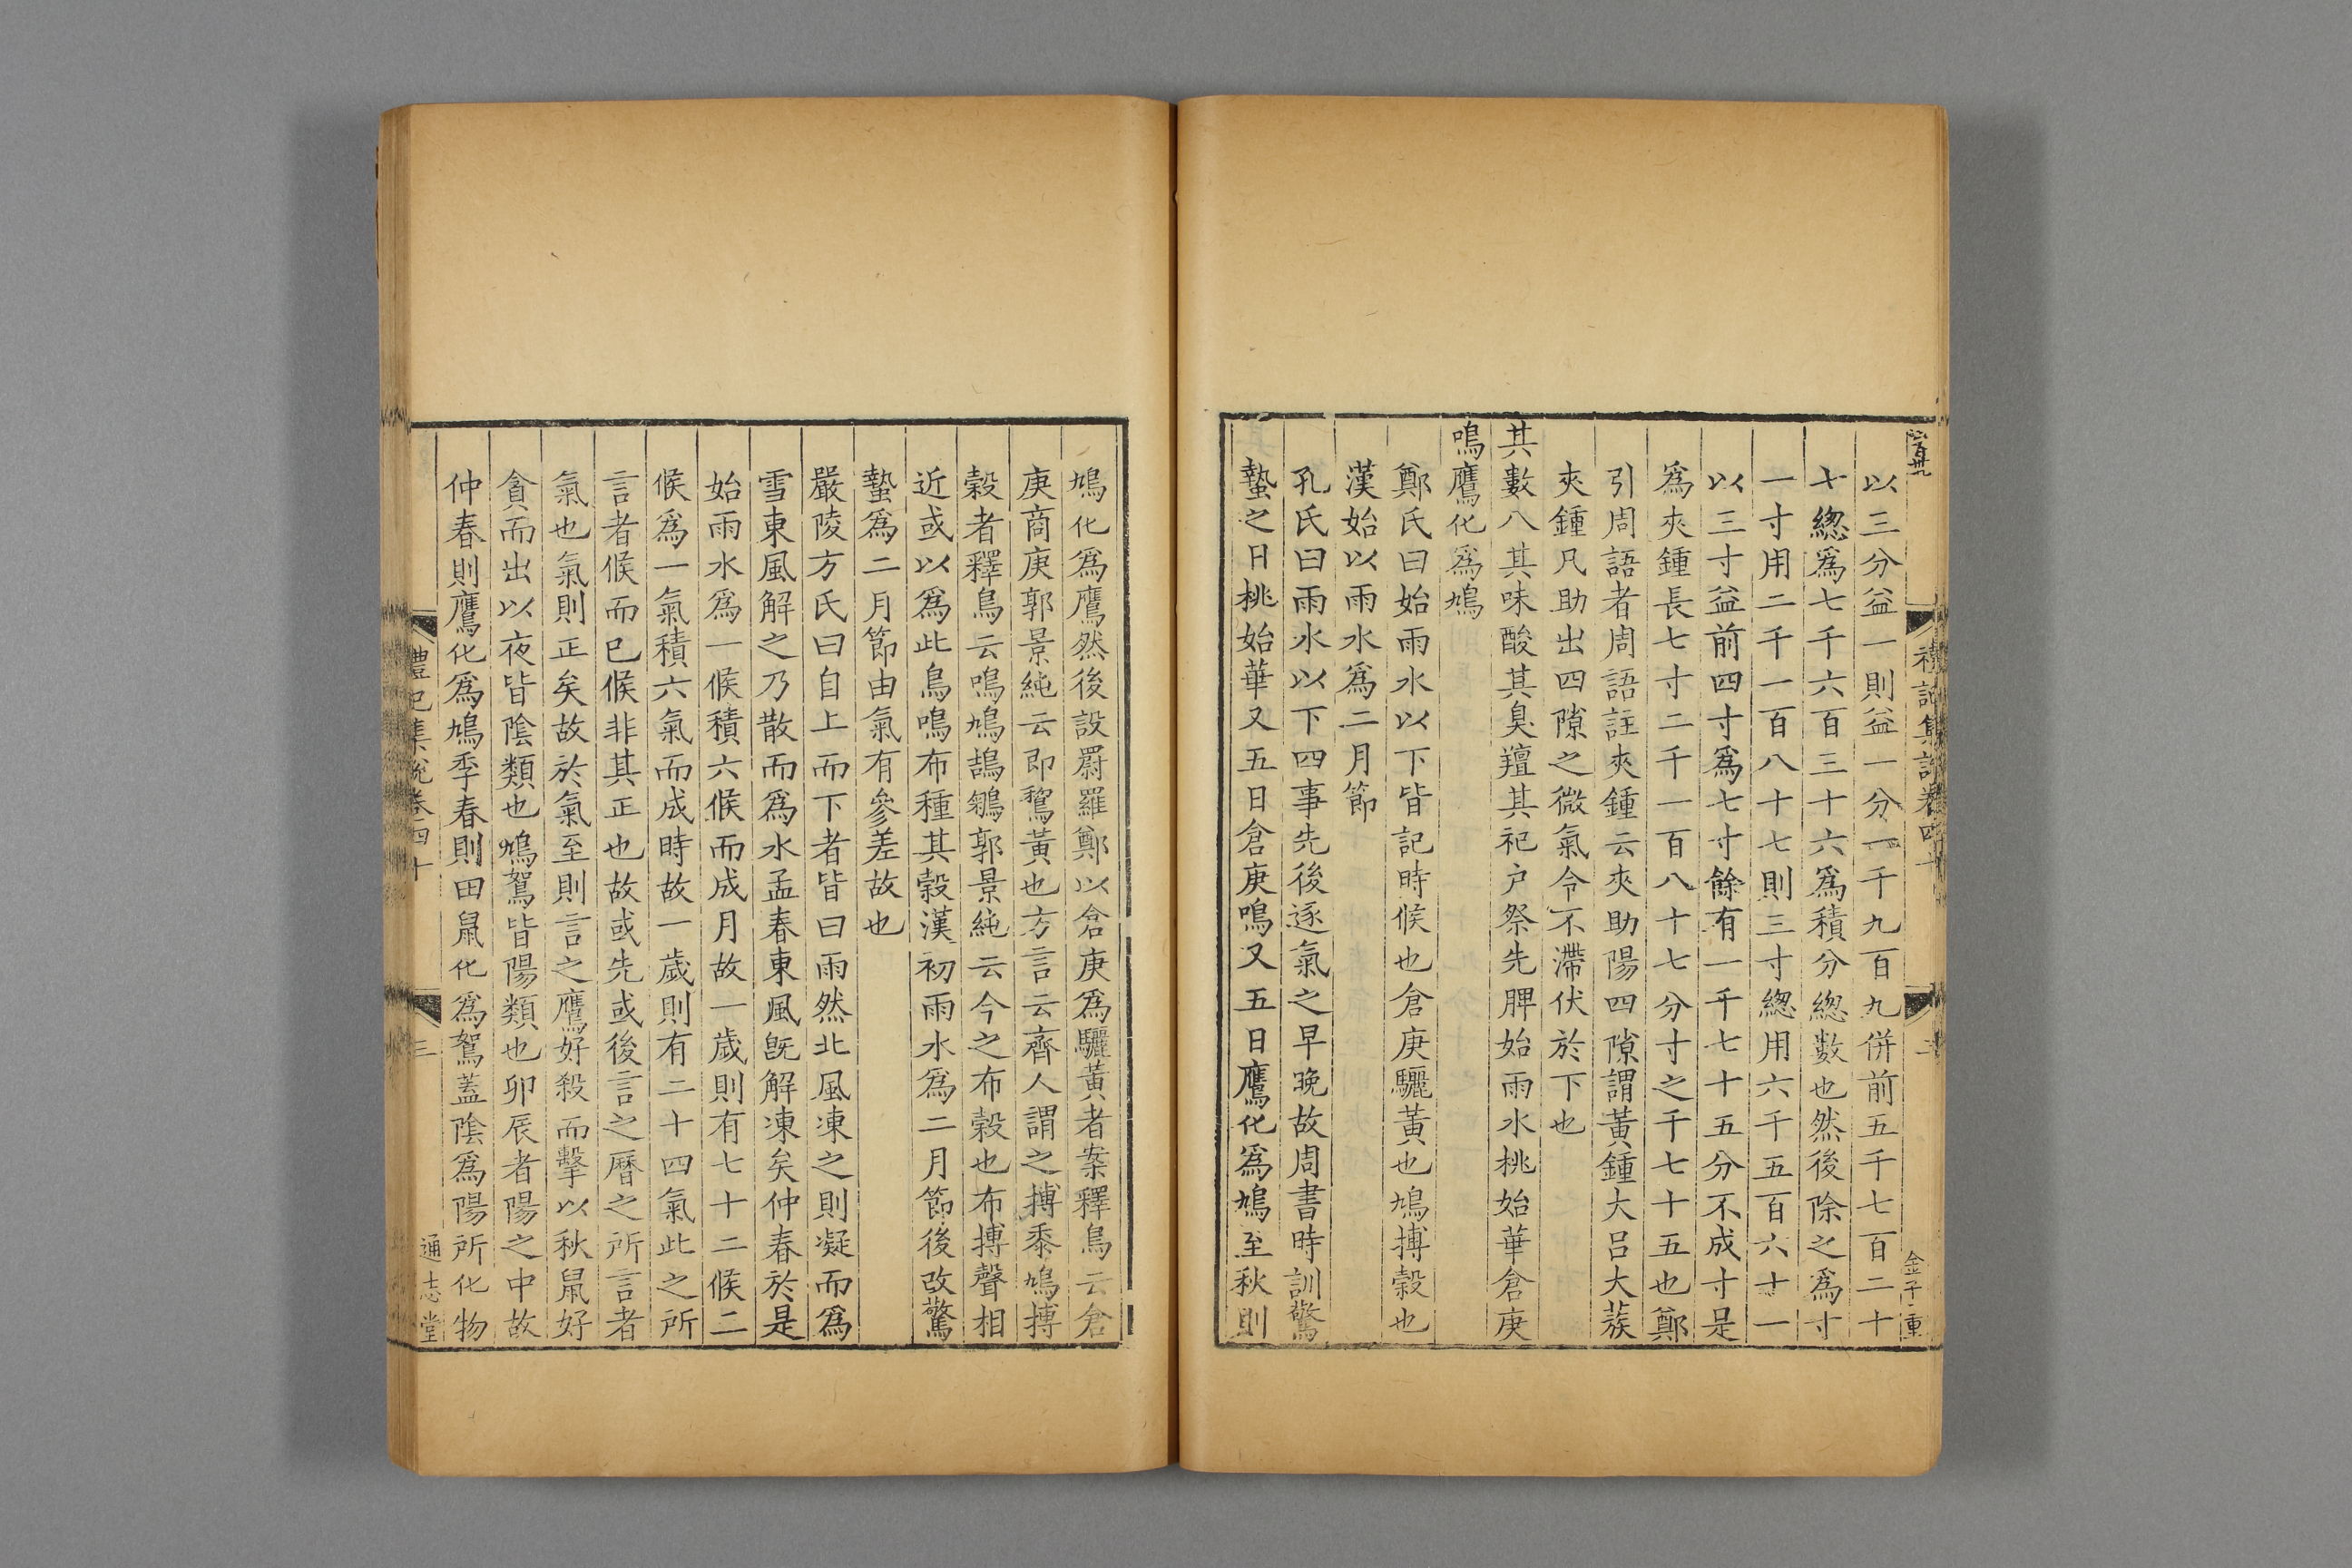 以三分益一則益一分一千九百九併前五千七百二十
七緫爲七千六百三十六爲積分緫數也然後除之爲寸
一寸用二千一百八十七則三寸緫用六千五百六十一
以三寸益前四寸爲七寸餘有一千七十五分不成寸是
爲夾鍾長七寸二千一百八十七分寸之千七十五也鄭
引周語者周語註夾鍾云夾助陽四隙謂黃鍾大呂大蔟
夾鍾凡助出四隙之微氣令不滯伏於下也
其數八其味酸其臭羶其祀户祭先脾始雨水桃始華倉庚
鳴鷹化爲鳩
鄭氏曰始雨水以下皆記時候也倉庚驪黃也鳩搏穀也
漢始以雨水爲二月節
孔氏曰雨水以下四事先後逐氣之早晚故周書時訓驚
蟄之日桃始華又五日倉庚鳴又五日鷹化爲鳩至秋則
鳩化爲鷹然後設罻羅鄭以倉庚爲驪黃者案釋鳥云倉
庚商庚郭景純云即鵹黃也方言云齊人謂之搏黍鳩搏
穀者釋鳥云鳲鳩鴶鵴郭景純云今之布穀也布搏聲相
近或以爲此鳥鳴布種其穀漢初雨水爲二月節後改驚
蟄爲二月節由氣有參差故也
嚴陵方氏曰自上而下者皆曰雨然北風凍之則凝而爲
雪東風解之乃散而爲水孟春東風旣解凍矣仲春於是
始雨水爲一候積六候而成月故一歲則有七十二候二
候爲一氣積六氣而成時故一歲則有二十四氣此之所
言者候而已候非其正也故或先或後言之曆之所言者
氣也氣則正矣故於氣至則言之鷹好殺而擊以秋鼠好
貪而出以夜皆陰類也鳩鴽皆陽類也卯辰者陽之中故
仲春則鷹化爲鳩季春則田鼠化爲鴽蓋陰爲陽所化物
禮記集說卷四十
三
通志堂